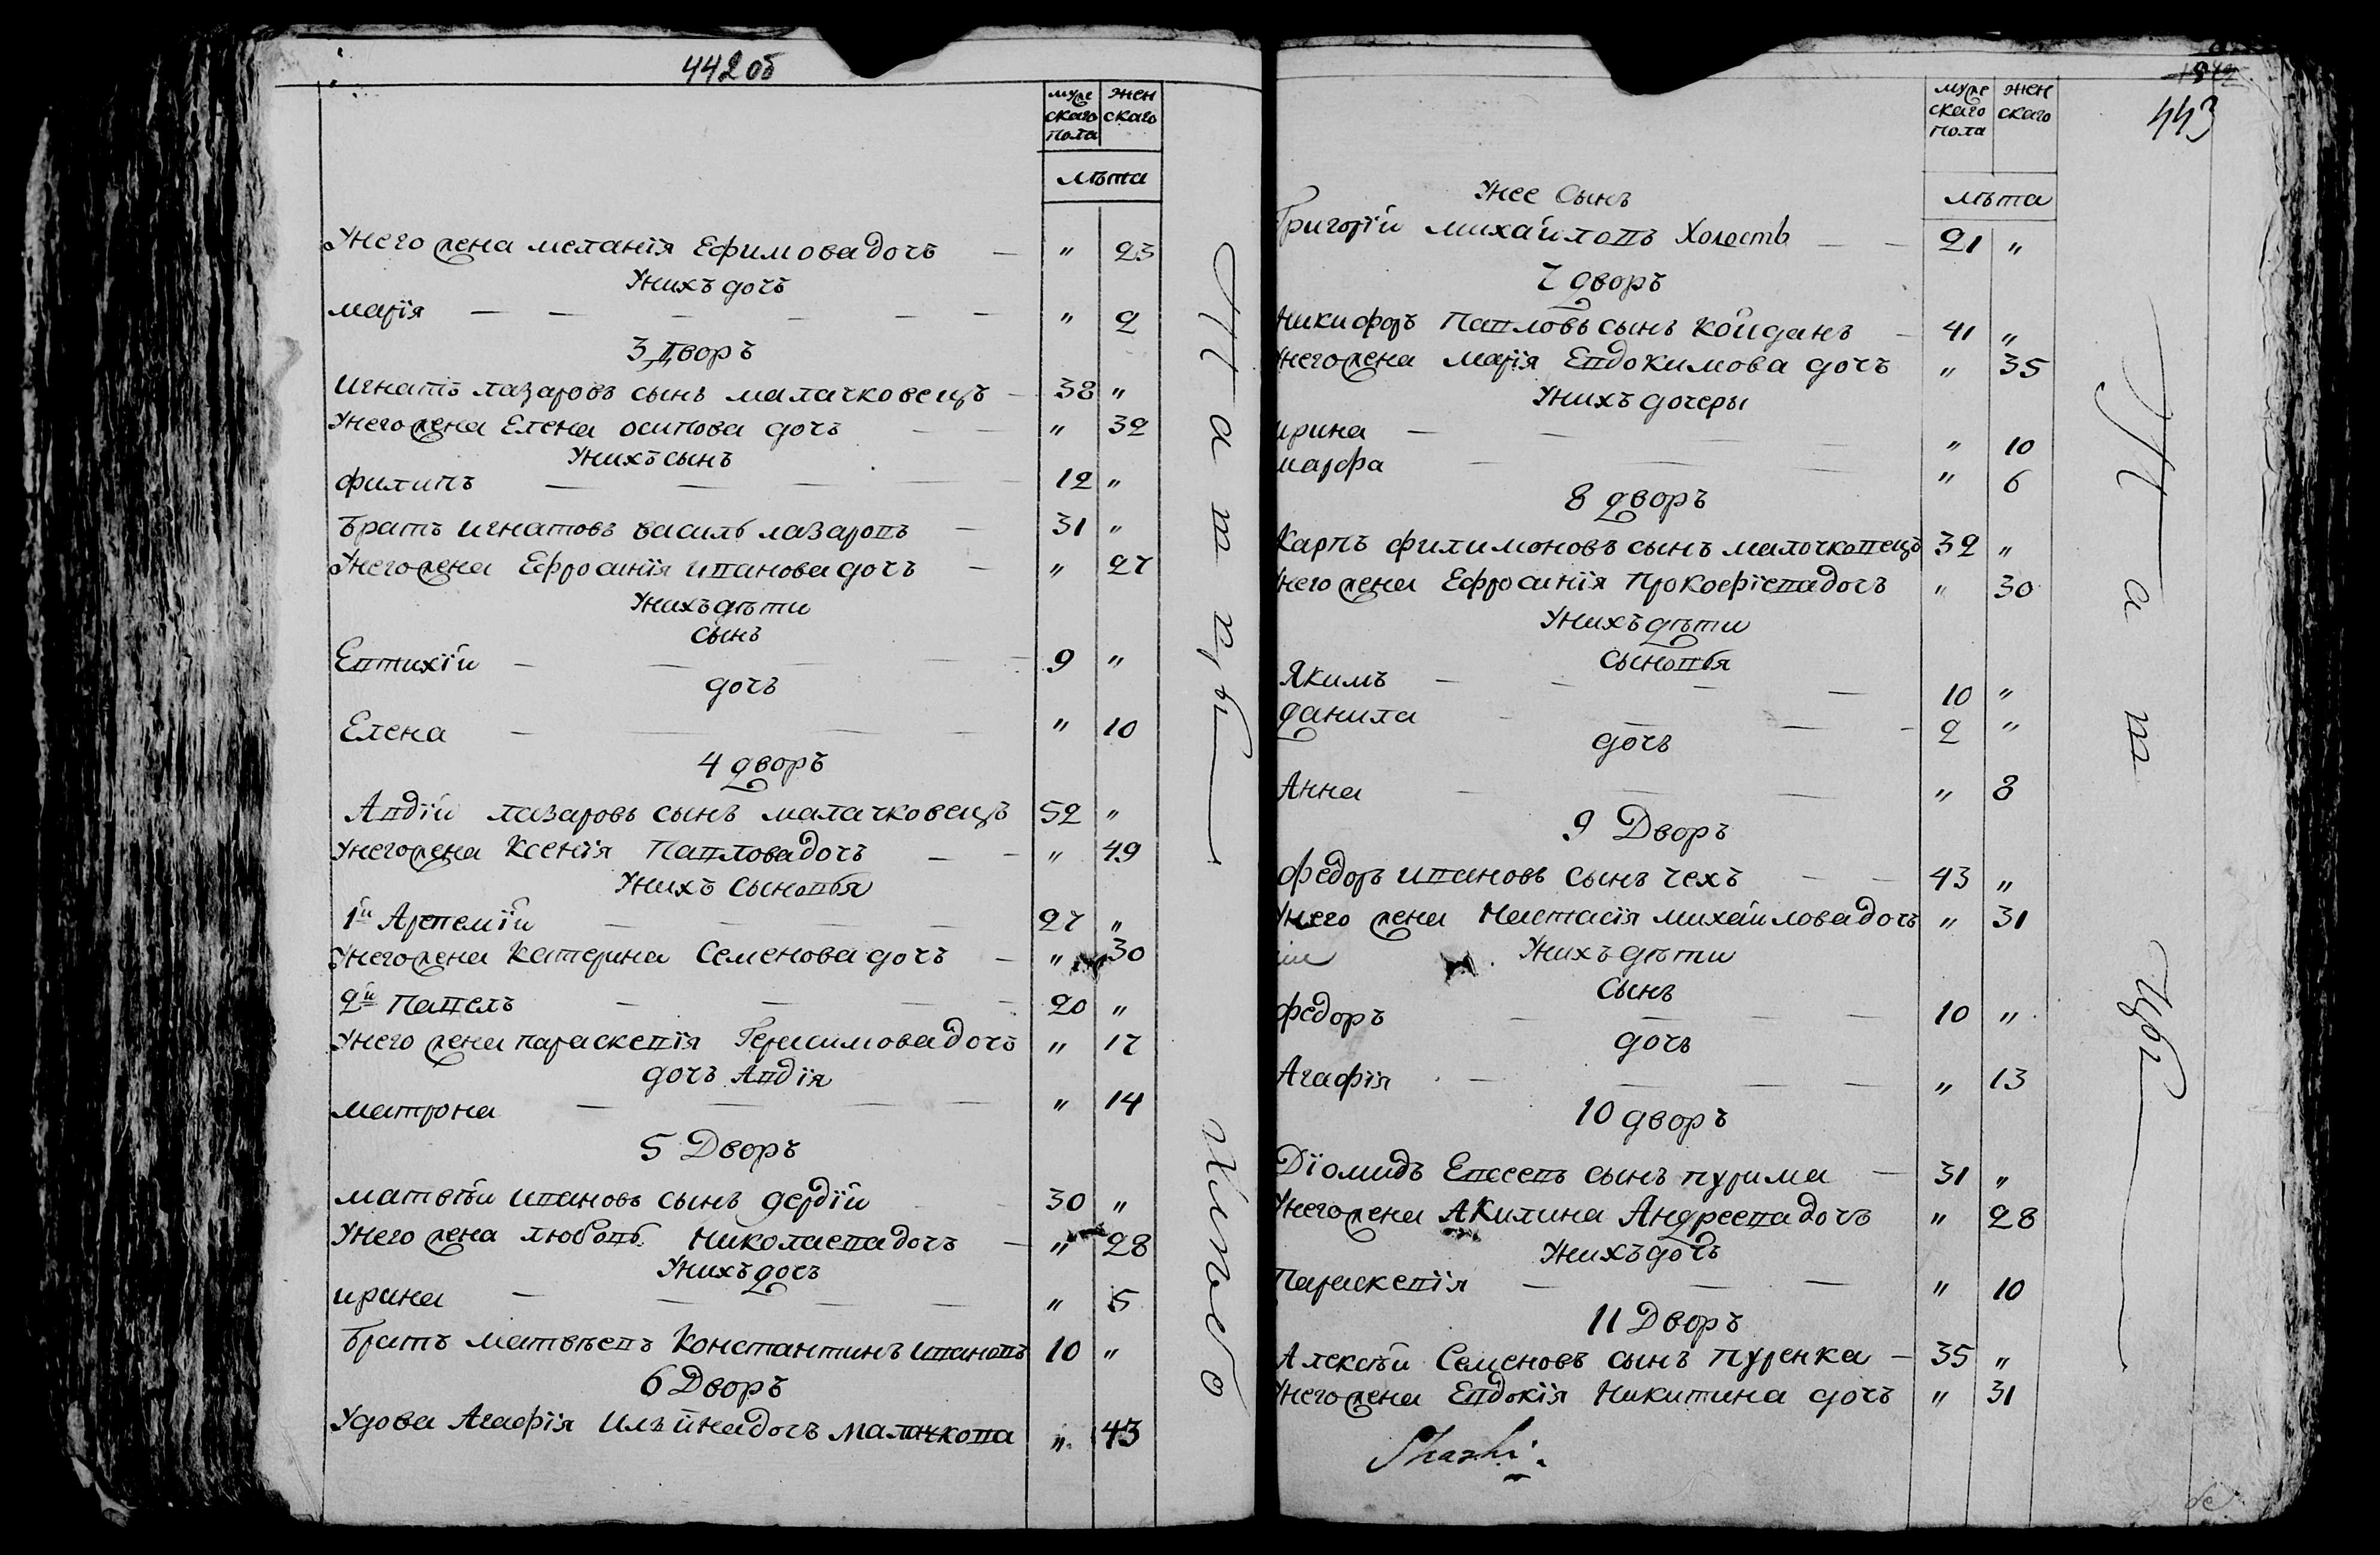 442 об
муже
скаго
пола
жен
скаго
лѣта
У него жена меланія Ефимова дочь — " 23
У нихъ дочь
марія — — — — — — " 2
3 Дворъ
игнатъ лазаровъ сынъ малачковецъ — 38 "
У него жена Елена осипова дочь — — " 32
У нихъ сынъ
филипъ — — — — — 12 "
братъ игнатовъ василь лазаровъ — 31 "
У него жена Ефросинія иванова дочь — " 27
У нихъ дѣти
сынъ
Евтихій — — — — 9 "
дочь
Елена — — — — " 10
4 дворъ
Авдій лазаровъ сынъ малачковецъ 52 "
У него жена Ксенія Павлова дочь — — " 49
У нихъ сыновья
1й Артемій — — — — 27 "
У него жена Катерина Семенова дочь — " 30
2й Павелъ — — — — 20 "
У него жена параскевія Герасимова дочь " 17
дочь Авдія
матрона — — — — " 14
5 Дворъ
матвѣй ивановъ сынъ дердій 30 "
У него жена любовь николаева дочь — " 28
У нихъ дочь
ирина — — — — " 5
братъ матвѣевъ Константинъ ивановъ 10 "
6 Дворъ
Удова Агафія Ильина дочь малачкова " 43
443
муже
скаго
пола
жен
скаго
лѣта
У нее Сынъ
Григорій михайловъ Холостъ — — 21 "
7 дворъ
Никифоръ Павловъ сынъ койданъ — 41 "
У него жена марія Евдокимова дочь " 35
У нихъ дочеры
ирина — — — " 10
марфа — — — " 6
8 дворъ
Карпъ филимоновъ сынъ малочковецъ 32 "
У него жена Ефросинія прокофіева дочь " 30
У нихъ дѣти
сыновья
Якимъ — — — — 10 "
данила — — — — 2 "
дочь
Анна — — — — " 8
9 Дворъ
федоръ ивановъ сынъ чехъ — — 43 "
У него жена Настасія михайлова дочь " 31
У нихъ дѣти
Сынъ
федоръ — — — — 10 "
дочь
Агафія — — — — " 13
10 дворъ
Діомидъ Евсевъ сынъ пурима — 31 "
У него жена Акилина Андреева дочь " 28
У нихъ дочь
Параскевія — — — " 10
11 Дворъ
Алексѣй Семеновъ сынъ пуренка — 35 "
У него жена Евдокія Никитина дочь " 31